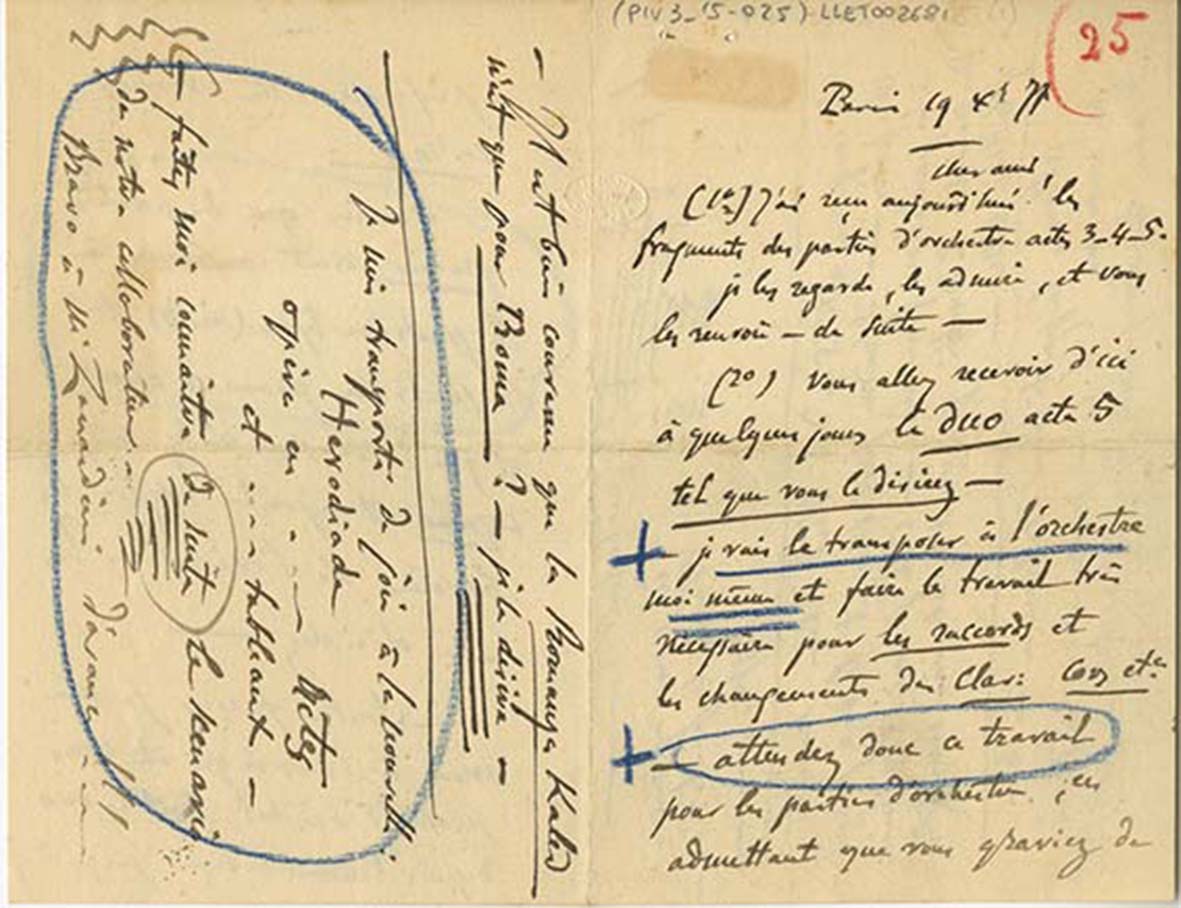 (PIV3_15-025) LLET002681
25
Paris 19 Xbre 77
cher ami,
(1o) J'ai reçu aujourd'hui les
fragments des parties d'orchestre actes 3_4_5.
je les regarde, les admire, et vous
les renvoie — de suite —
(2o) vous allez recevoir d'ici
à quelques jours le Duo acte 5
tel que vous le désirez —
+ je vais le transposer à l'orchestre
moi même et faire le travail très
nécessaire pour les raccords et
les changements des Clar: Cors etc.
+ — attendez donc ce travail
pour les parties d'orchestre ; en
admettant que vous graviez de
— Il est bien convenu que la Romanza Kaled
n'est que pour Rome ? — je le désire —
Je suis transporté de joie à la nouvelle:
Hérodiade
opéra en actes
et tableaux —
faites moi connaître de suite le scenario
de notre collaborateur
Bravo à Mr Zanardini d'avance !!